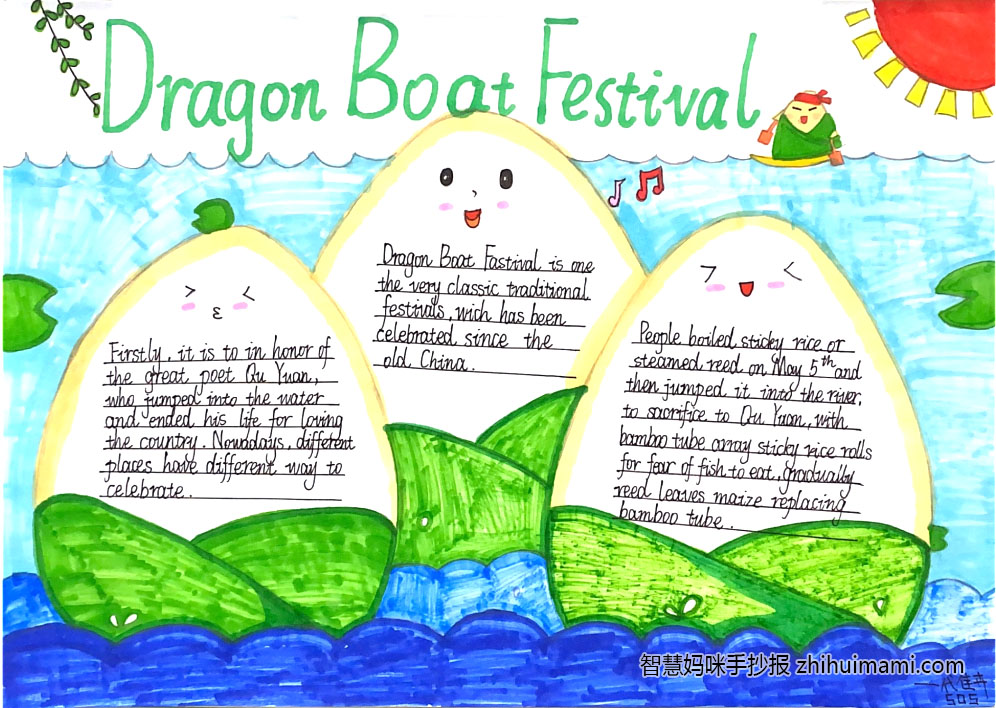 Dragon Boat Festival
Dragon Boat Fastival is one
the very classic traditional
festivals, wich has been
celebrated since the
old China.
Firstly, it is to in honor of
the great poet Qu Yuan,
who jumped into the water
and ended his life for loving
the country. Nowadays, different
places have different way to
celebrate.
People boiled sticky rice or
steamed reed on May 5th and
then jumped it into the river,
to sacrifice to Qu Yuan, with
bamboo tube array sticky rice rolls
for fear of fish to eat, gradually
reed leaves maize replacing
bamboo tube.
智慧妈咪手抄报 zhihuimami.com
505